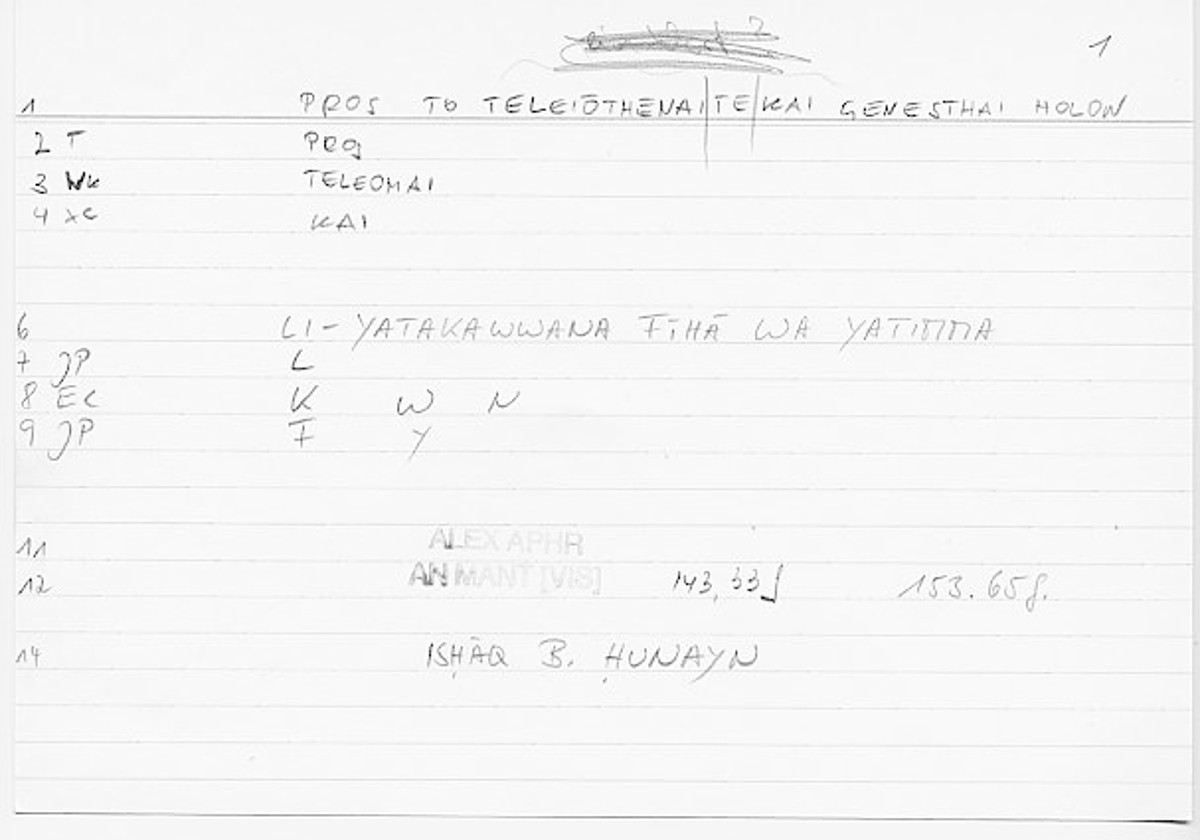 1
1 PROS TO TELEIŌTHĒNAI|TE|KAI GENESTHAI HOLON
2 T PROS
3 WK TELEOMAI
4 XC KAI
6 LI-YATAKAWWANA FĪHĀ WA YATIMMA
7 JP L
8 EC K W N
9 JP F Y
11 ALEX APHR
12 AN MANT [VIS] 143,33f 153.65f.
14 ISḤĀQ B. ḤUNAYN